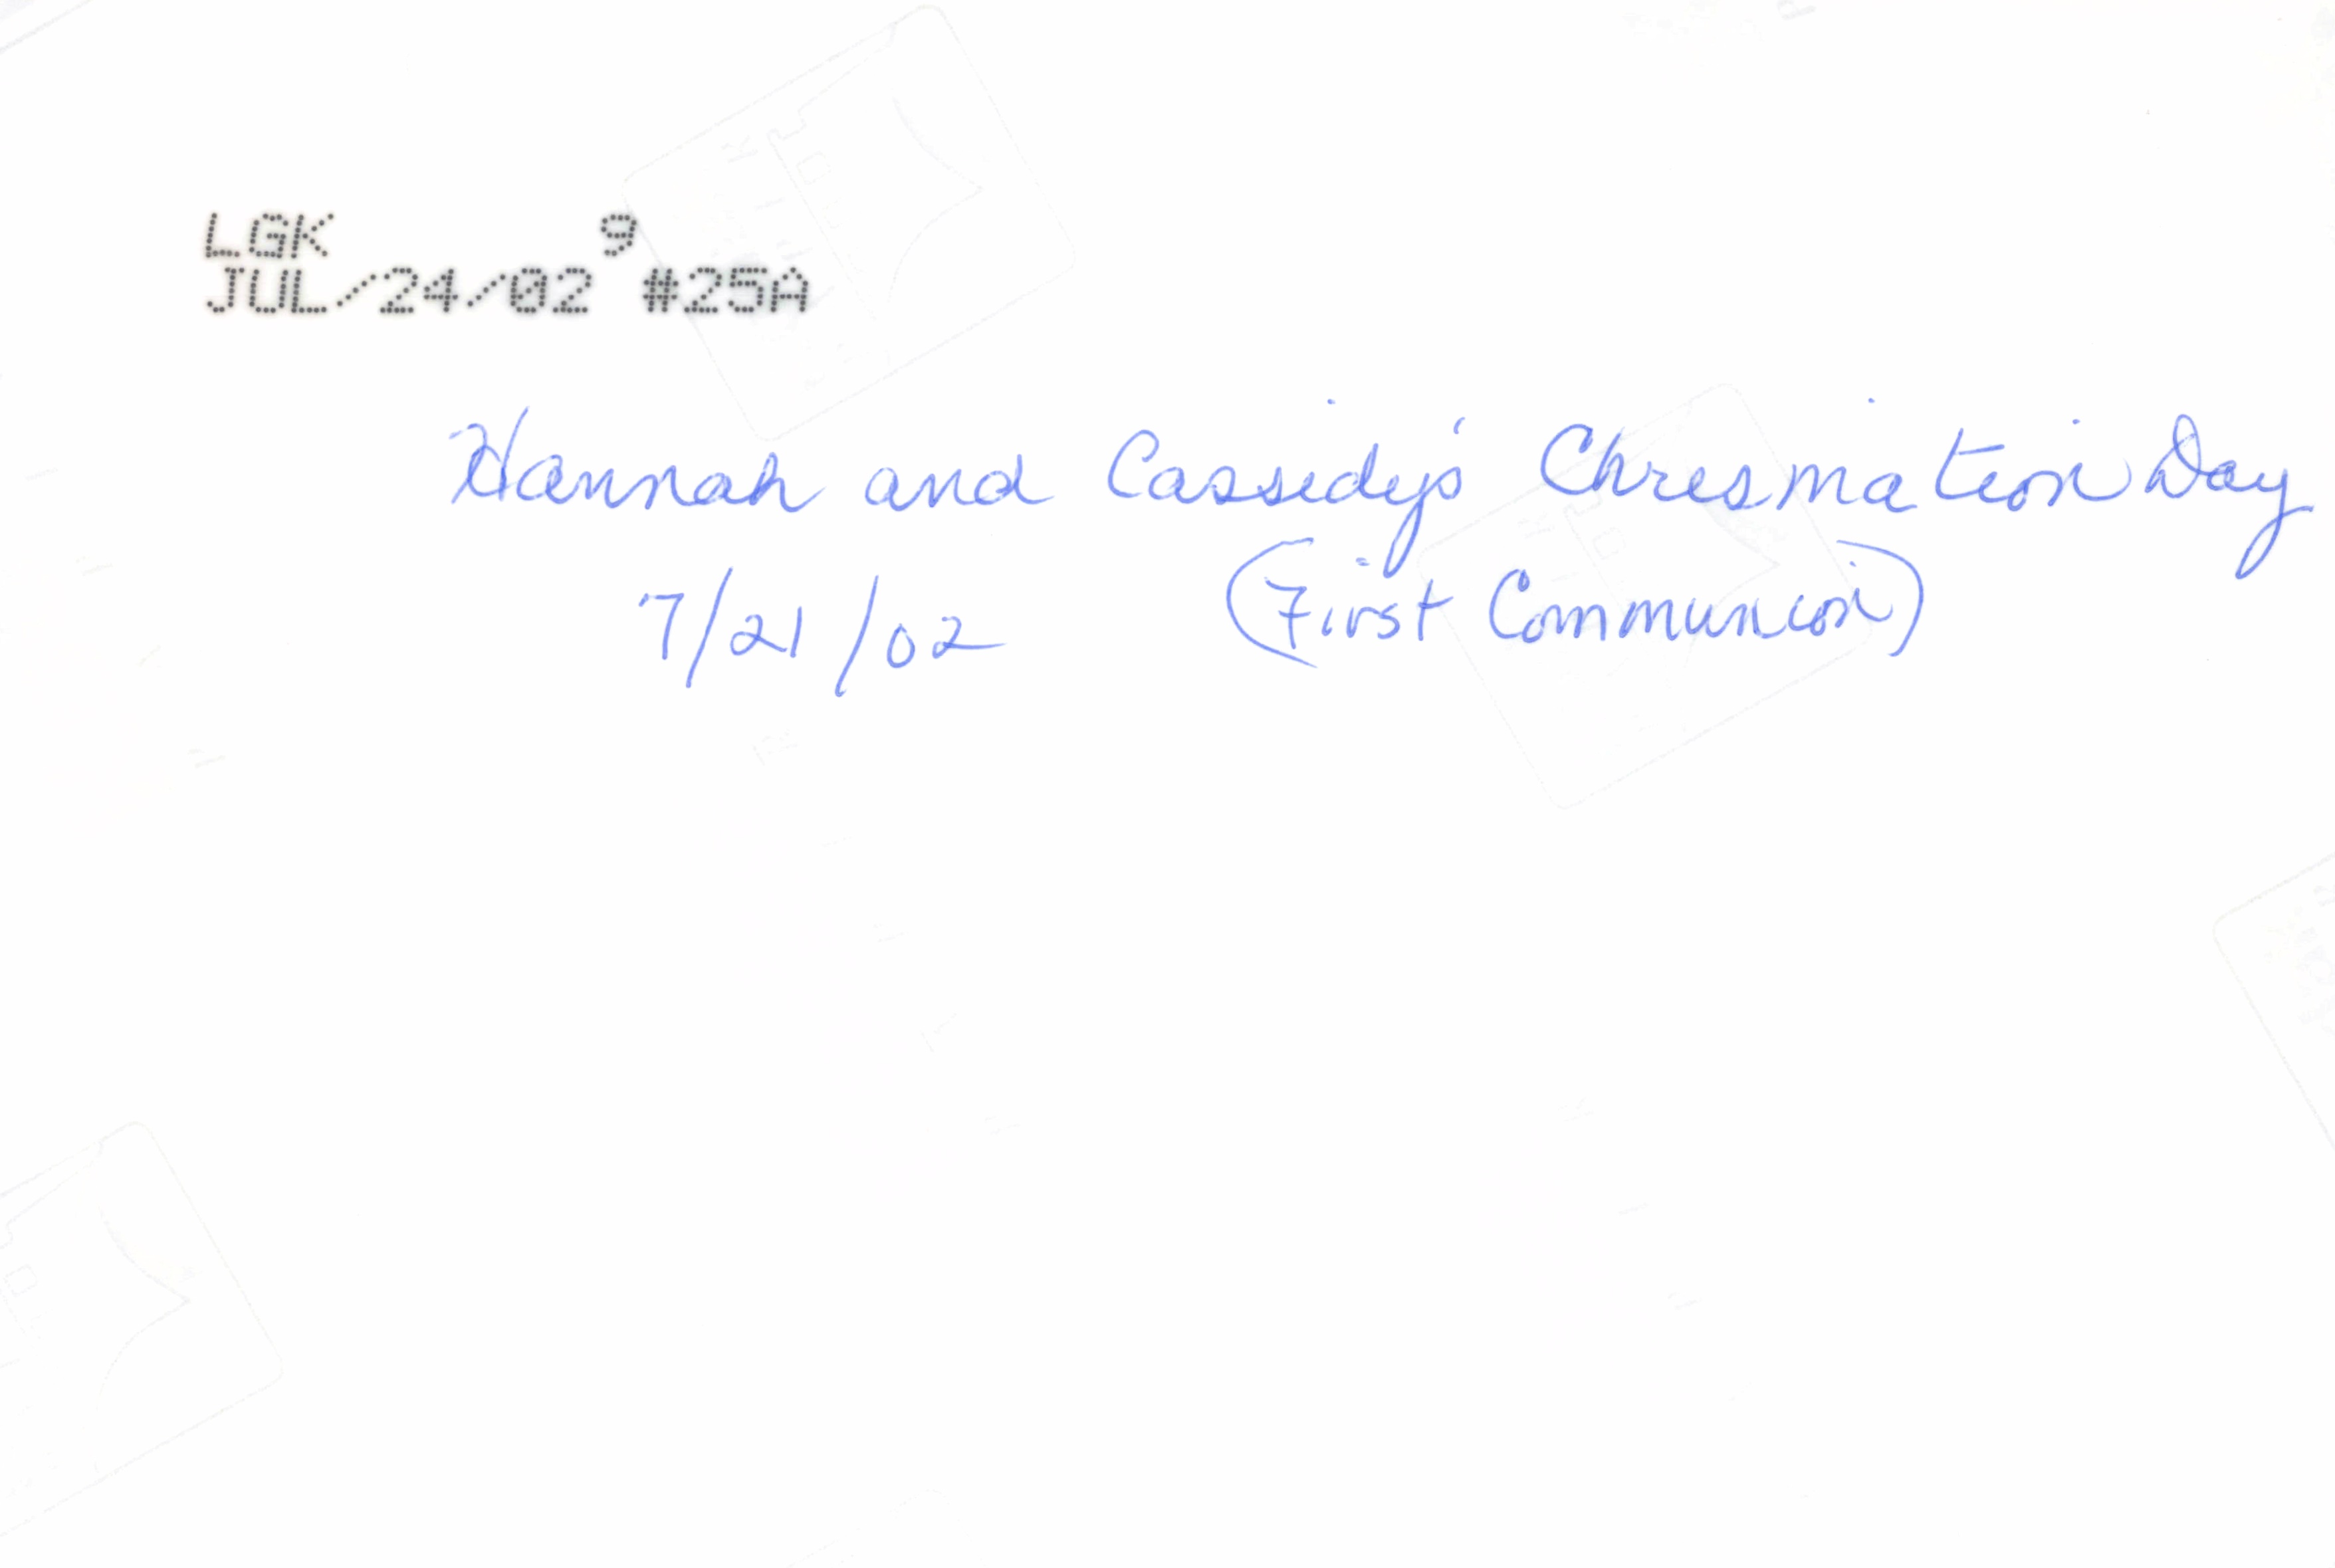 LGK 9
JUL/24/02 #25A
Hannah and Cassidy's Chrismation Day
7/21/02 (First Communion)